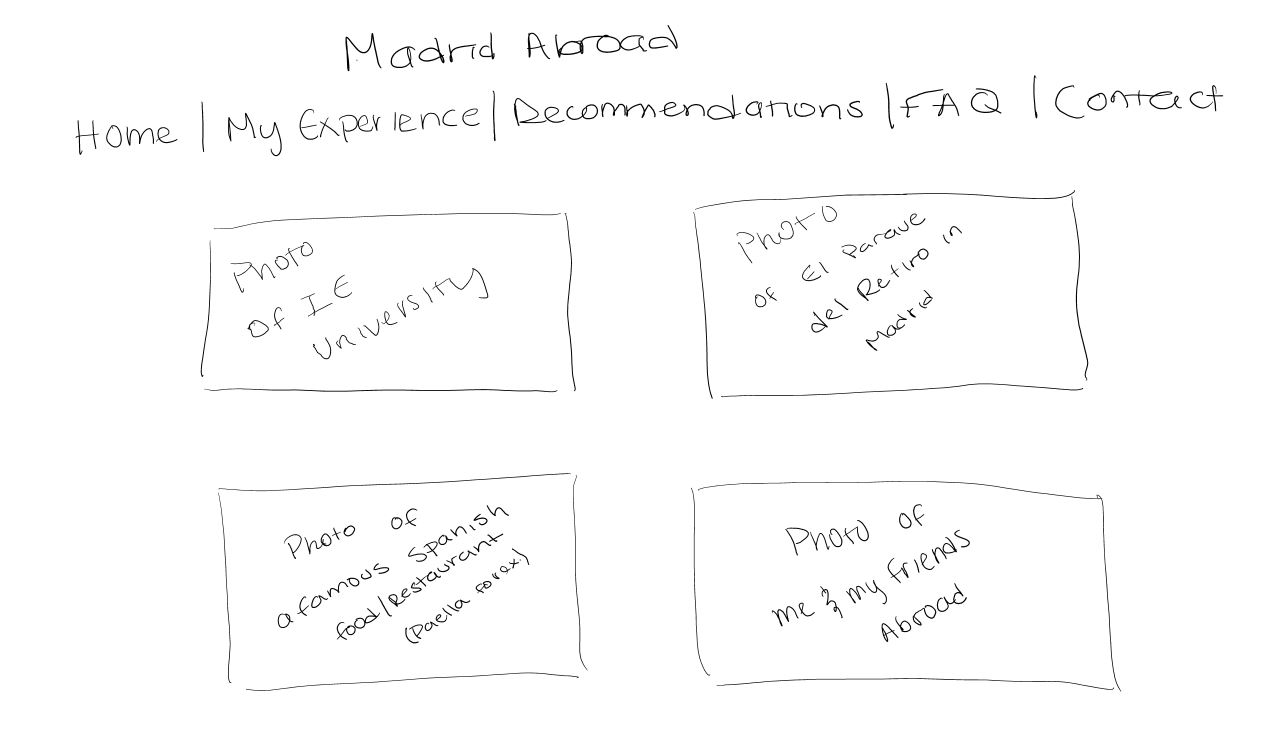 Madrid Abroad
Home | My Experience | Recommendations | FAQ | Contact
Photo
of IE
university
Photo
of El Parque
del Retiro in
Madrid
Photo of
a famous Spanish
food/Restaurant
(Paella for ex.)
Photo of
me & my friends
Abroad